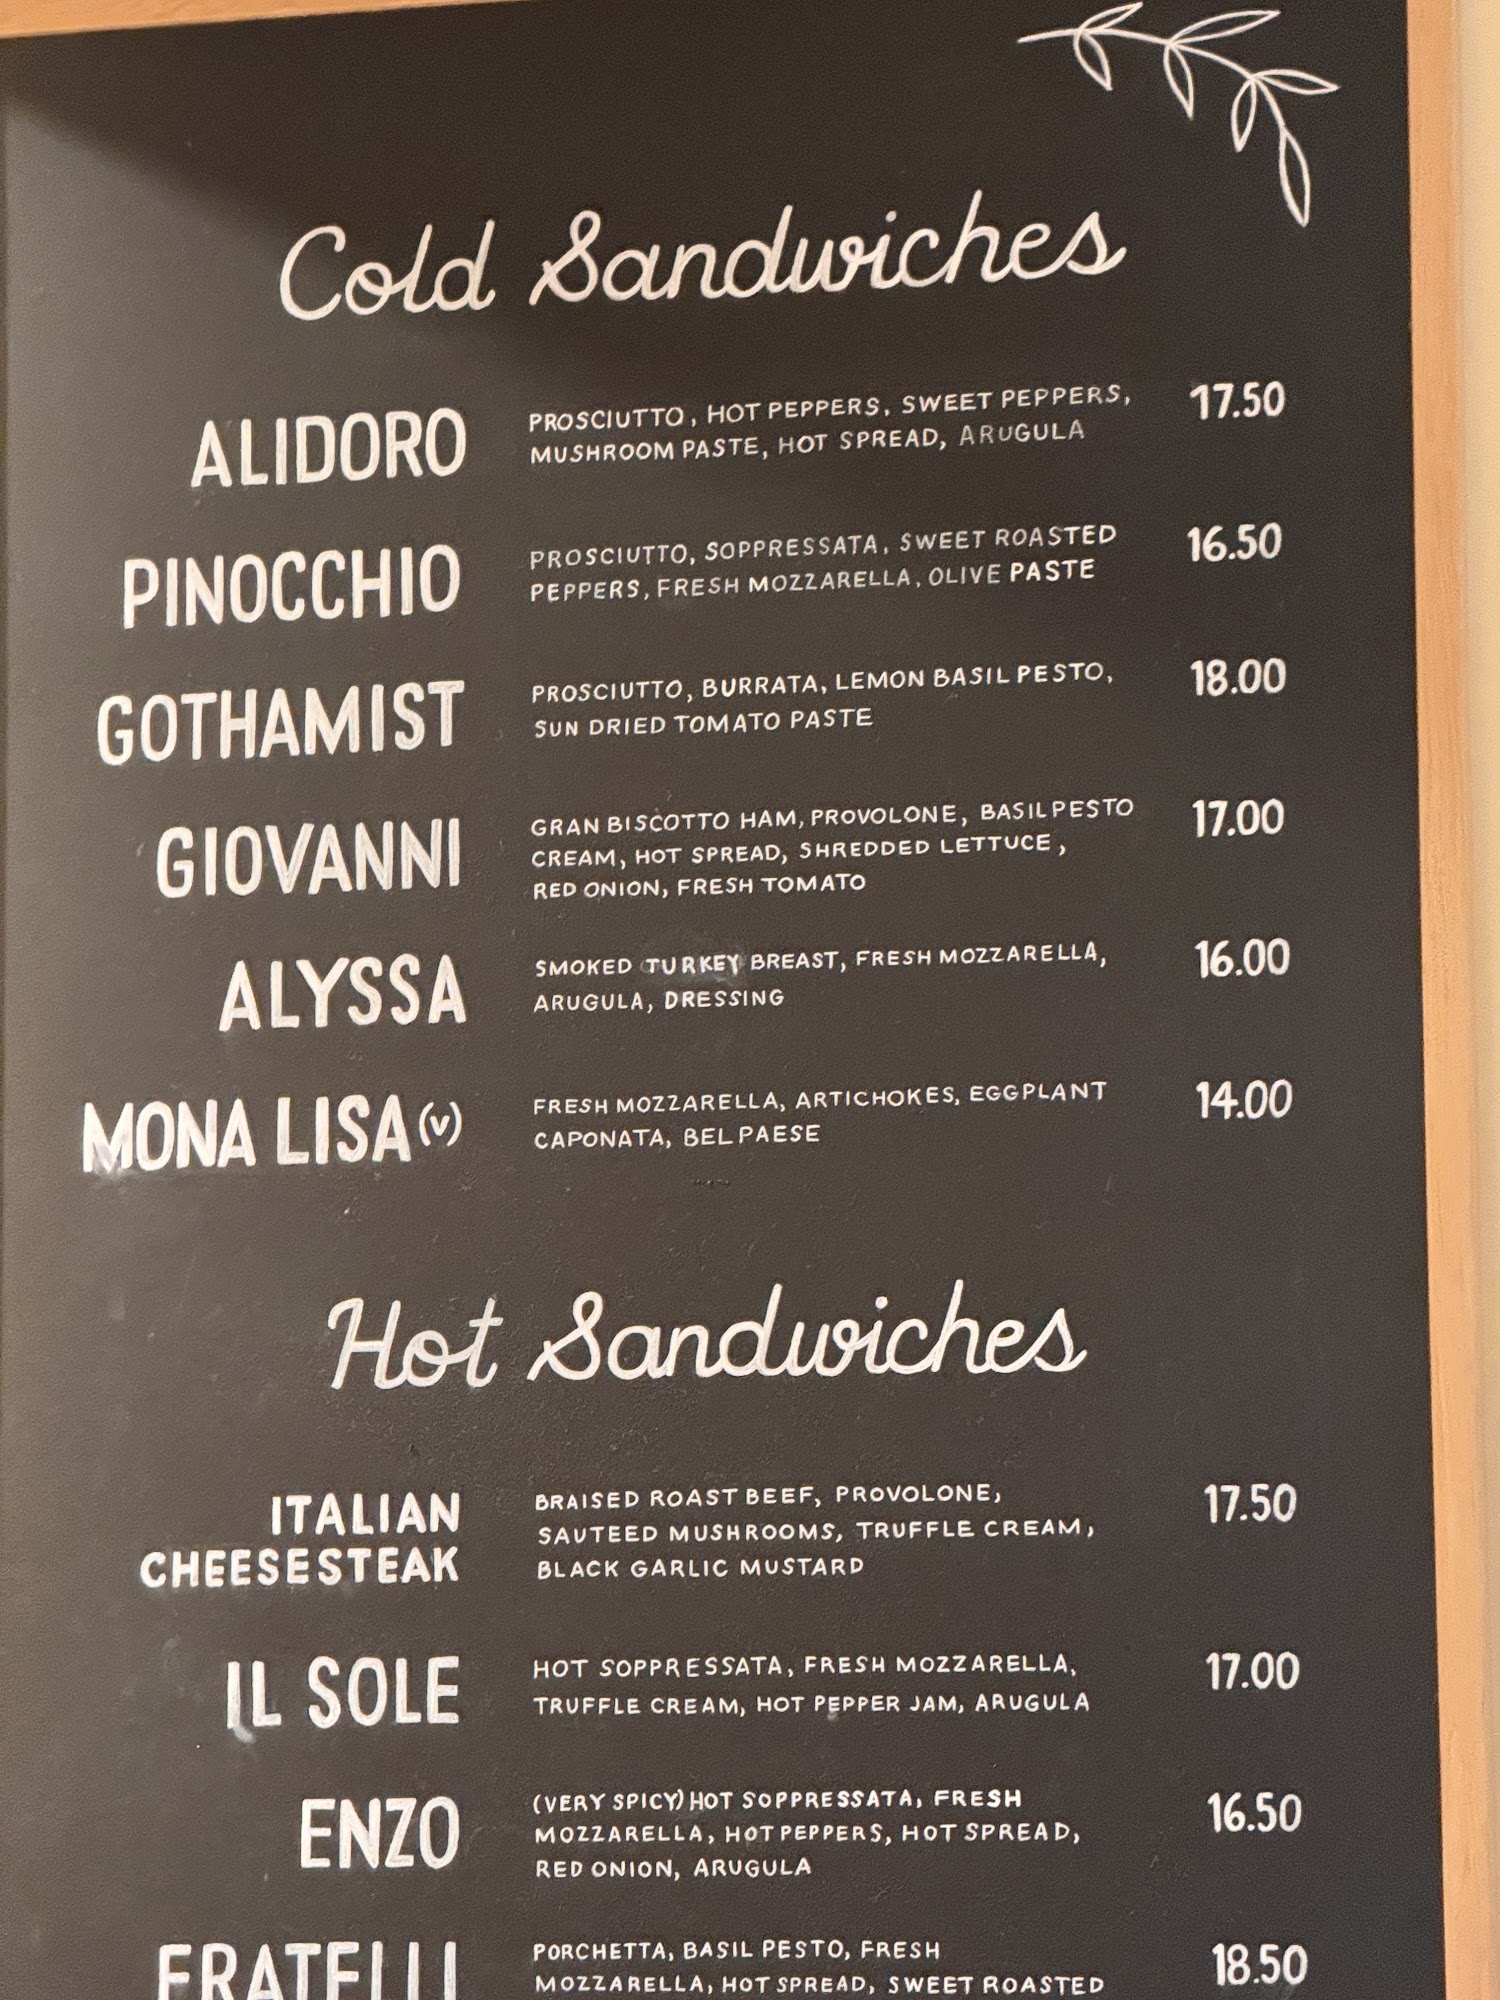 Cold Sandwiches
ALIDORO
PROSCIUTTO, HOT PEPPERS, SWEET PEPPERS,
MUSHROOM PASTE, HOT SPREAD, ARUGULA
17.50
PINOCCHIO
PROSCIUTTO, SOPPRESSATA, SWEET ROASTED
PEPPERS, FRESH MOZZARELLA, OLIVE PASTE
16.50
GOTHAMIST
PROSCIUTTO, BURRATA, LEMON BASIL PESTO,
SUN DRIED TOMATO PASTE
18.00
GIOVANNI
GRAN BISCOTTO HAM, PROVOLONE, BASIL PESTO
CREAM, HOT SPREAD, SHREDDED LETTUCE,
RED ONION, FRESH TOMATO
17.00
ALYSSA
SMOKED TURKEY BREAST, FRESH MOZZARELLA,
ARUGULA, DRESSING
16.00
MONA LISA (V)
FRESH MOZZARELLA, ARTICHOKES, EGGPLANT
CAPONATA, BEL PAESE
14.00
Hot Sandwiches
ITALIAN
CHEESESTEAK
BRAISED ROAST BEEF, PROVOLONE,
SAUTEED MUSHROOMS, TRUFFLE CREAM,
BLACK GARLIC MUSTARD
17.50
IL SOLE
HOT SOPPRESSATA, FRESH MOZZARELLA,
TRUFFLE CREAM, HOT PEPPER JAM, ARUGULA
17.00
ENZO
(VERY SPICY) HOT SOPPRESSATA, FRESH
MOZZARELLA, HOT PEPPERS, HOT SPREAD,
RED ONION, ARUGULA
16.50
FRATELLI
PORCHETTA, BASIL PESTO, FRESH
MOZZARELLA, HOT SPREAD, SWEET ROASTED
18.50